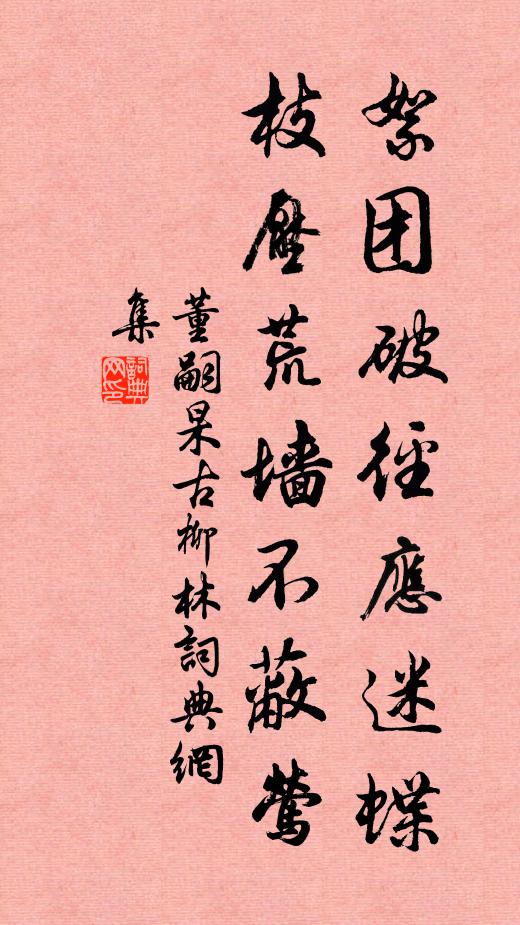 絮团破径應迷蝶
枝壓荒墙不蔽莺
董嗣杲古柳林詞典網
集
詞典网印